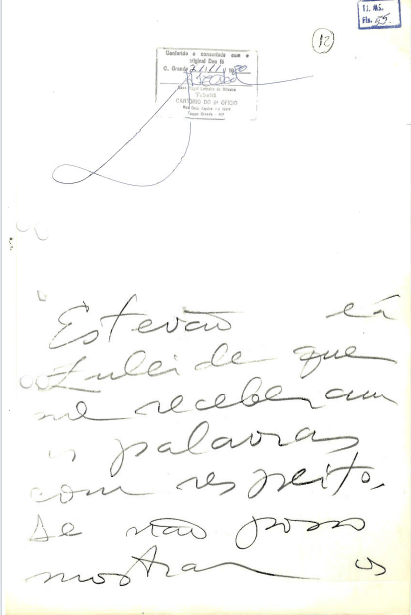 TJ. MS.
Fls. 55.
12
Conferido e concordado com o
original Dou fé
C. Grande
Tabelião
CARTÓRIO DO 6º OFICIO
"Estevão
Zuleide que
me receberam
palavras
com respeito.
Se não posso
mostrar os